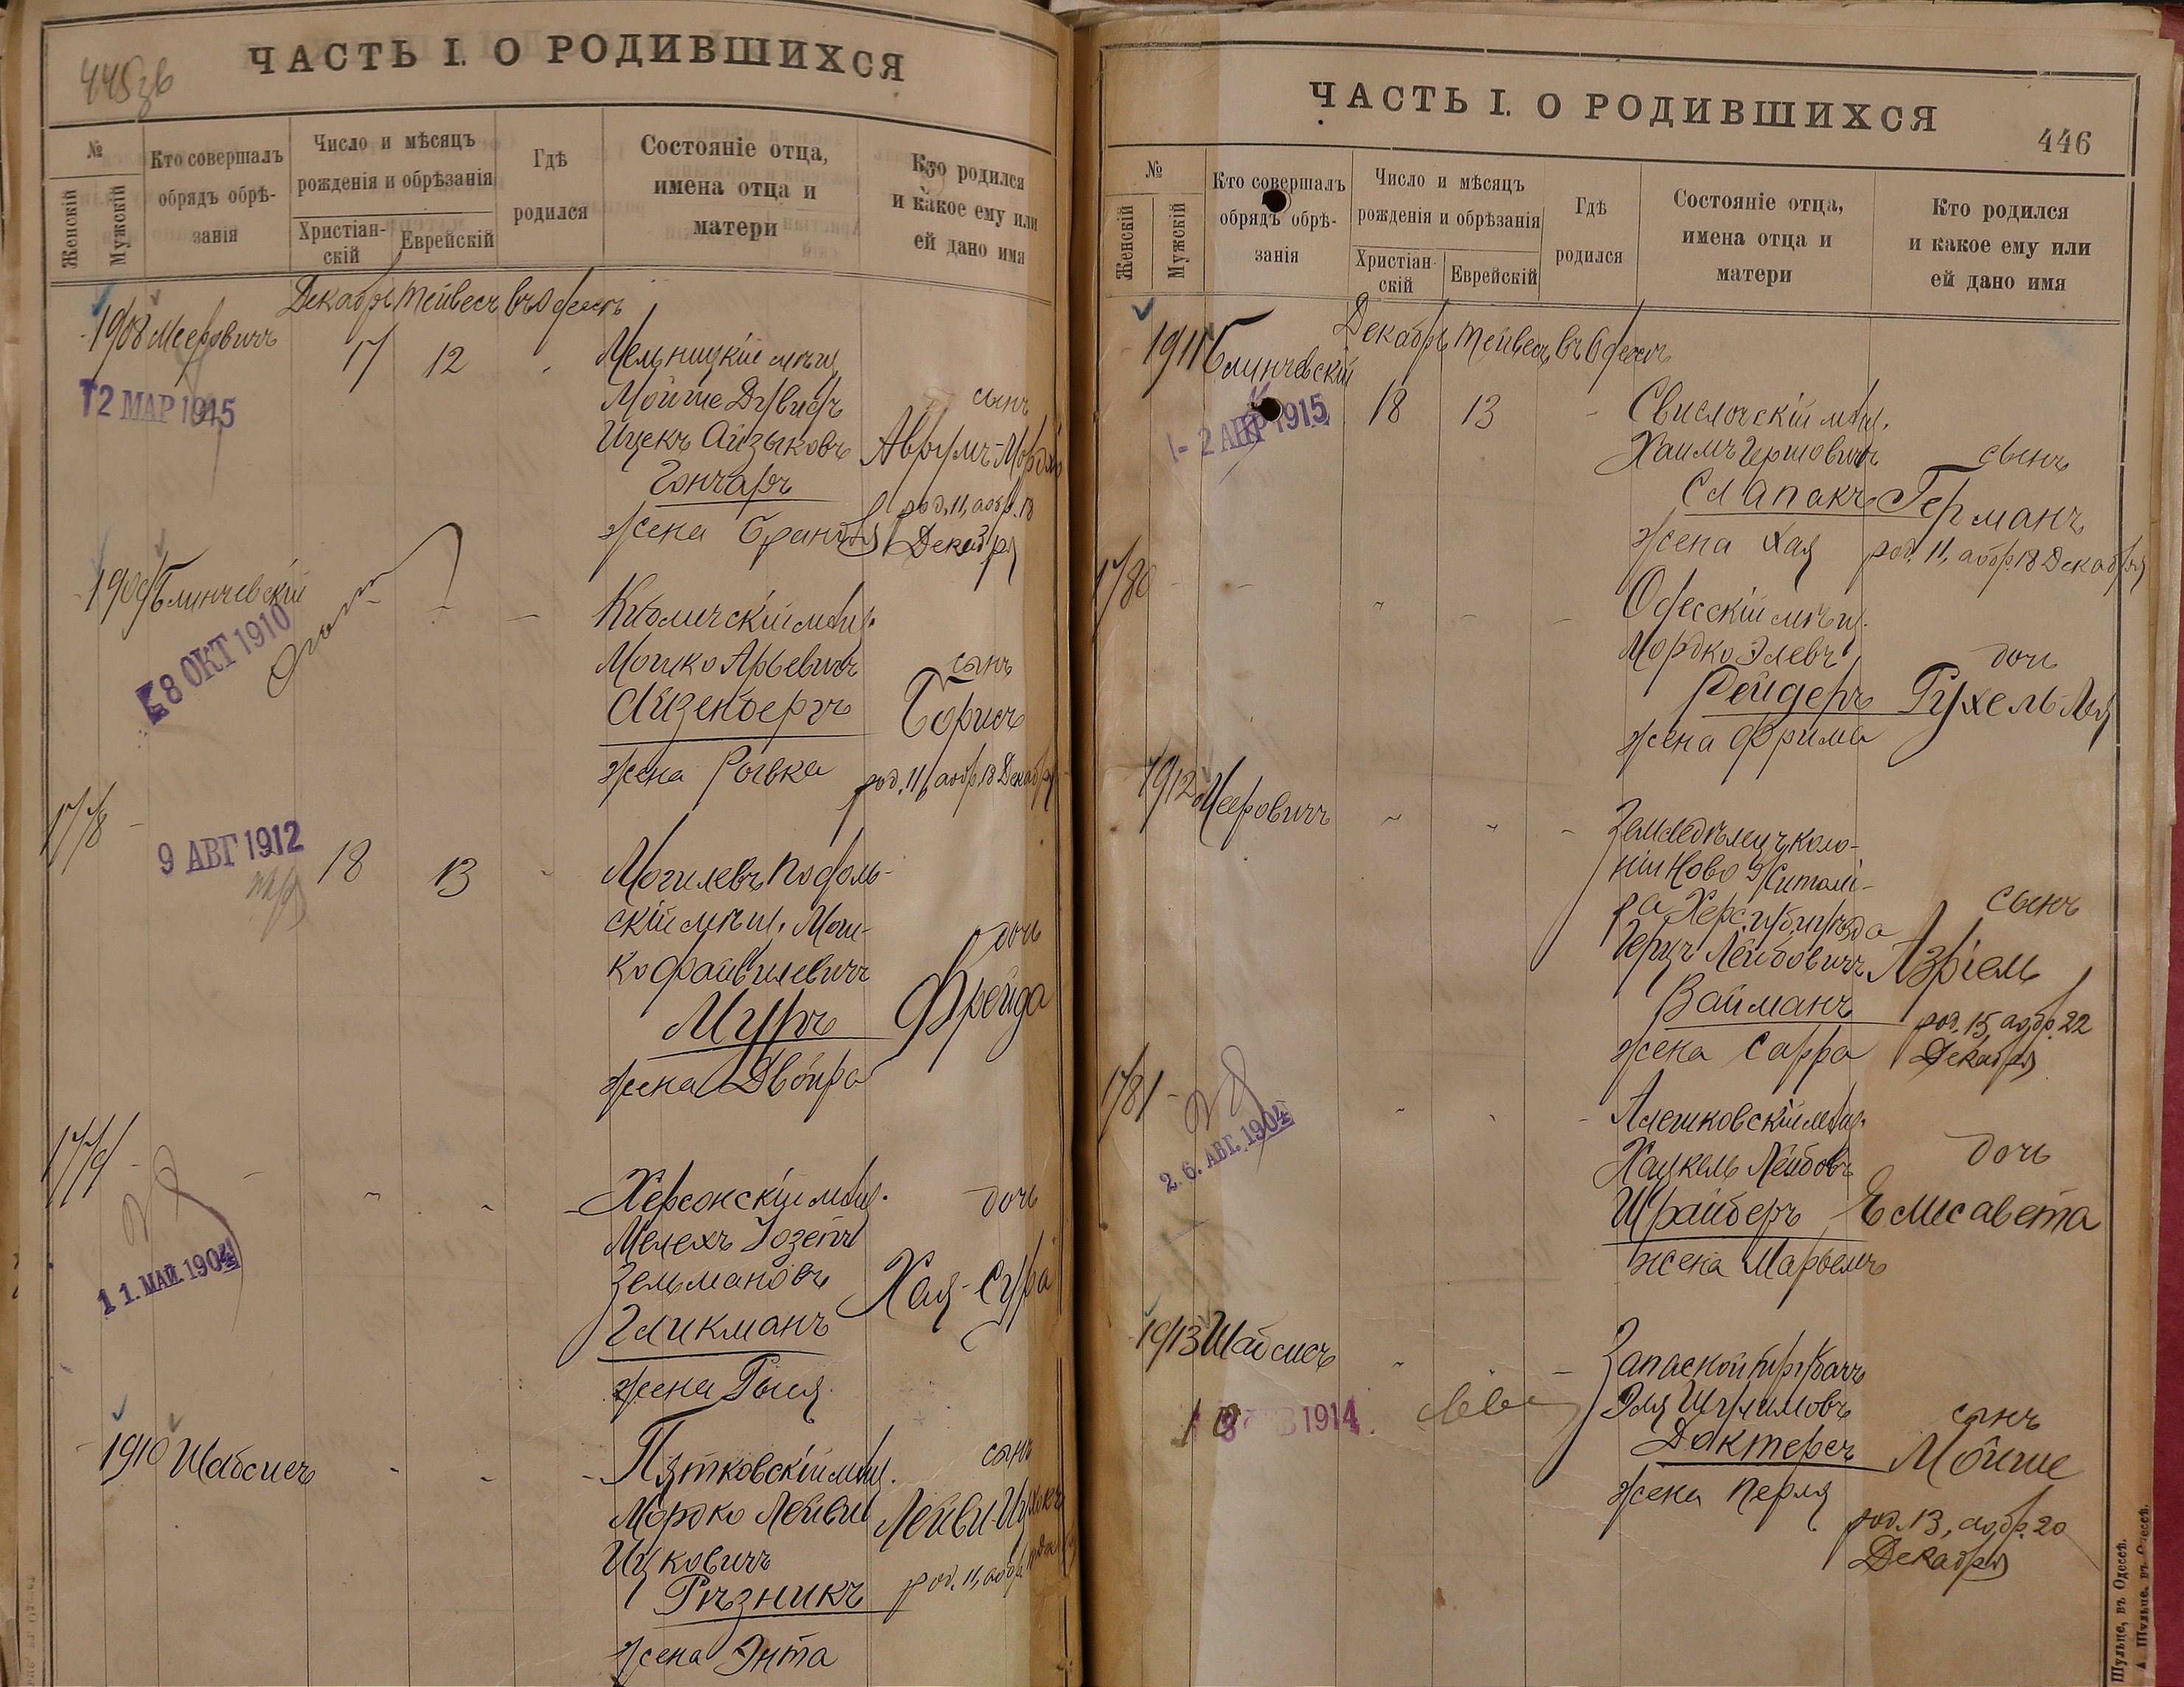 445об
ЧАСТЬ I. О РОДИВШИХСЯ
№
Женскій
Мужскій
Кто совершалъ
обрядъ обрѣ-
занія
Число и мѣсяцъ
рожденія и обрѣзанія
Христіан-
скій
Еврейскій
Гдѣ
родился
Состояніе отца,
имена отца и
матери
Кто родился
и какое ему или
ей дано имя
Декабрь Тейвесъ въ Одессѣ
1908 Мееровичъ 17 12
12 МАР 1915
Мельницкій мѣщ.
Мойше Дувидъ
Ицекъ Айзыковъ
Гончаръ
жена Брандля
сынъ
Аврумъ-Мордко
род. 11, обр. 18
Декабря
1909 Блинчевскій
8 ОКТ 1910
Мошко Арьевичъ
Айзенбергъ
жена Ривка
сынъ
Борисъ
род. 11, обр 18 Декабря
1778
9 АВГ 1912
18 13
Могилевъ Подоль-
скій мѣщ. Мош-
ко Файвилевичъ
Муръ
жена Двойра
дочь
Фрейда
1779
11. МАЙ. 1904
Херсонскій мѣщ.
Мелехъ Іозепъ
Зельмановъ
Гликманъ
жена Рыся
дочь
Хая-Сура
1910 Шабсисъ
Пятковскій мѣщ.
Мордко Лейви
Ицковичъ
Рѣзникъ
жена Энта
сынъ
Лейви-Ицхокъ
род. 11, обр
ЧАСТЬ I. О РОДИВШИХСЯ
446
№
Женскій
Мужскій
Кто совершалъ
обрядъ обрѣ-
занія
Число и мѣсяцъ
рожденія и обрѣзанія
Христіан-
скій
Еврейскій
Гдѣ
родился
Состояніе отца,
имена отца и
матери
Кто родился
и какое ему или
ей дано имя
Декабрь Тейвесъ въ Одессѣ
1911 Блинчевскій
2 АПР 1915
18 13
Свислочскій мѣщ.
Хаимъ Гершовичъ
Слапакъ
жена Хая
сынъ
Германъ
род. 11, обр. 18 Декабря
1780
Одесскій мѣщ.
Мордко Элевъ
Рейдеръ
жена Фрима
дочь
Рухель-Лея
1912 Мееровичъ
Земледѣлецъ коло-
ніи Ново Житомі-
ра Херс. губ. уѣзда
Герцъ Лейбовичъ
Вайманъ
жена Сарра
сынъ
Азріель
род. 15, обр. 22
Декабря
1781
2.6. АВГ. 1904
Алешковскій мѣщ.
Хацкель Лейбовъ
Шрайберъ
жена Марьемъ
дочь
Елисавета
1913 Шабсисъ
1914
Эля Шулимовъ
Доктеръ
жена Перля
сынъ
Мойше
род. 13, обр. 20
Декабря
Шульце, въ Одессѣ.
А. Шульце, въ Одессѣ.